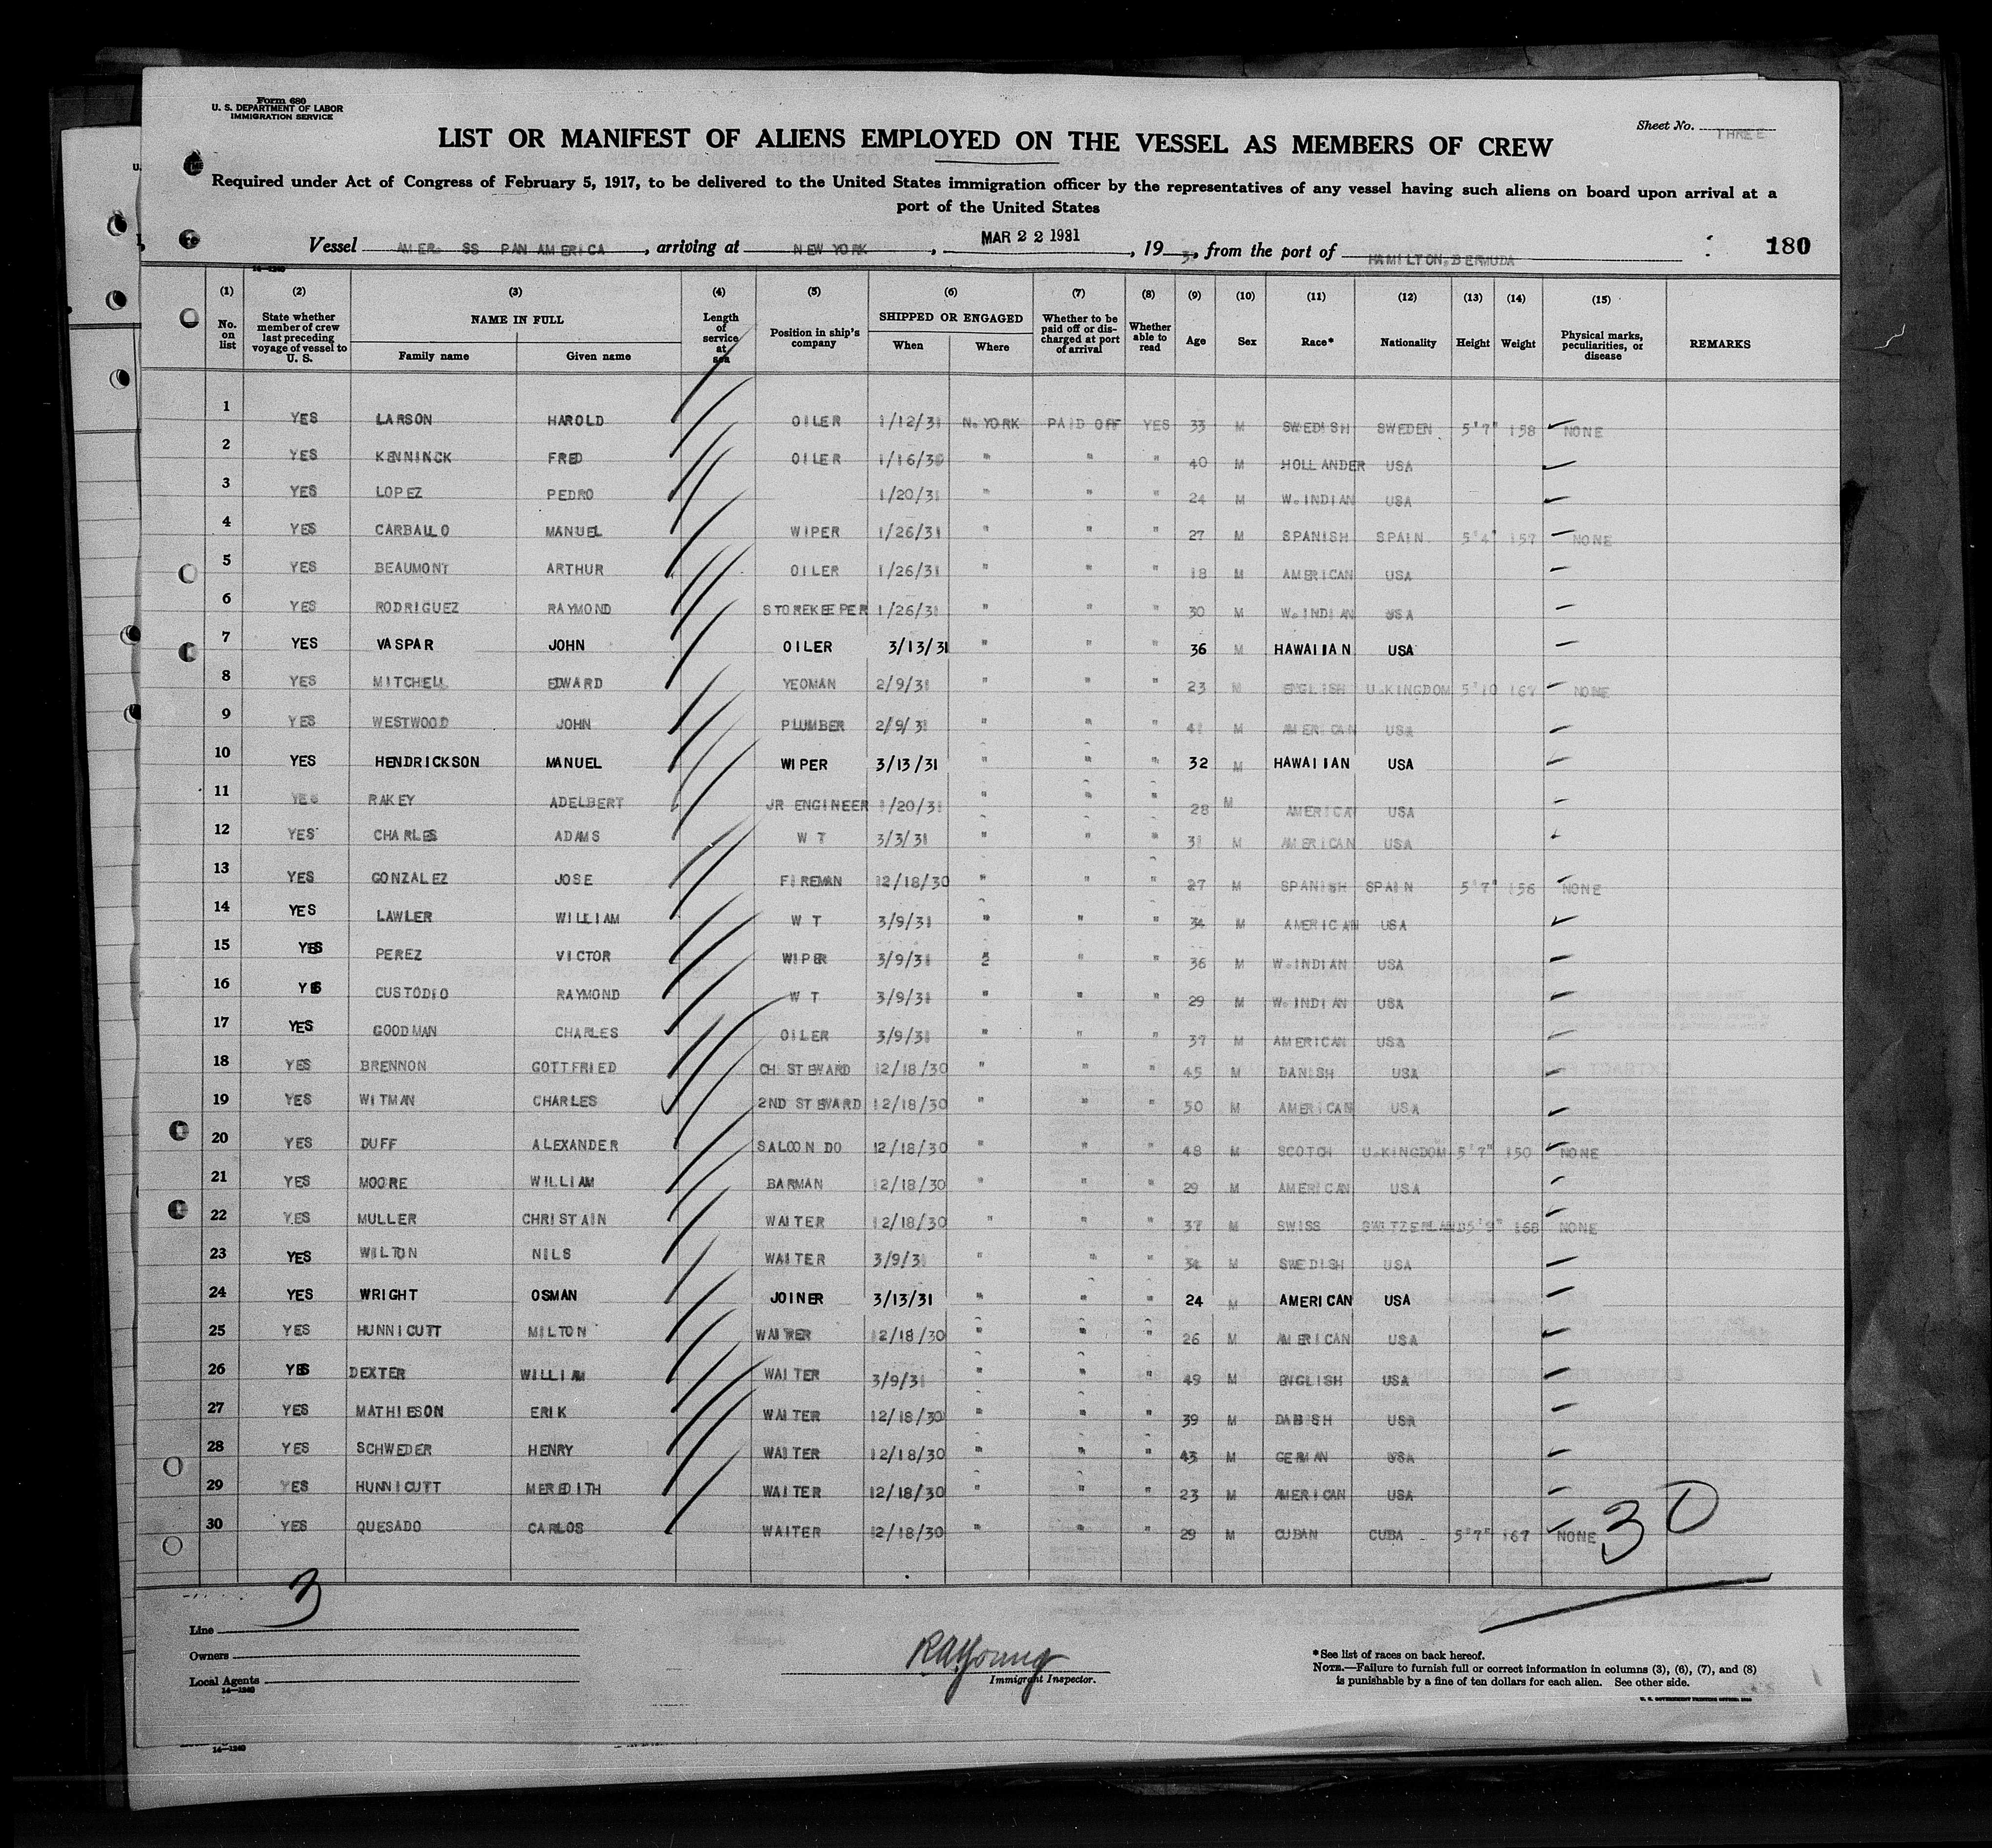 Form 680
U. S. DEPARTMENT OF LABOR
IMMIGRATION SERVICE
Sheet No. THREE
LIST OR MANIFEST OF ALIENS EMPLOYED ON THE VESSEL AS MEMBERS OF CREW
Required under Act of Congress of February 5, 1917, to be delivered to the United States immigration officer by the representatives of any vessel having such aliens on board upon arrival at a
port of the United States
Vessel AMER. SS PAN AMERICA, arriving at NEW YORK, MAR 22 1931, 19 , from the port of HAMILTON.BERMUDA 180
14—1240
(1) (2) (3) (4) (5) (6) (7) (8) (9) (10) (11) (12) (13) (14) (15)
No. on list State whether member of crew last preceding voyage of vessel to U. S. NAME IN FULL Family name Given name Length of service at sea Position in ship's company SHIPPED OR ENGAGED When Where Whether to be paid off or discharged at port of arrival Whether able to read Age Sex Race* Nationality Height Weight Physical marks, peculiarities, or disease REMARKS
1 YES LARSON HAROLD OILER 1/12/31 N.YORK PAID OFF YES 33 M SWEDISH SWEDEN 5'7" 158 NONE
2 YES KENNINCK FRED OILER 1/16/3 " " " 40 M HOLLANDER USA
3 YES LOPEZ PEDRO 1/20/31 " " " 24 M W.INDIAN USA
4 YES CARBALLO MANUEL WIPER 1/26/31 " " " 27 M SPANISH SPAIN. 5'4" 157 NONE
5 YES BEAUMONT ARTHUR OILER 1/26/31 " " " 18 M AMERICAN USA
6 YES RODRIGUEZ RAYMOND STOREKEEPER 1/26/31 " " " 30 M W.INDIAN USA
7 YES VASPAR JOHN OILER 3/13/31 " " " 36 M HAWAIIAN USA
8 YES MITCHELL EDWARD YEOMAN 2/9/31 " " " 23 M ENGLISH U.KINGDOM 5'10 167 NONE
9 YES WESTWOOD JOHN PLUMBER 2/9/31 " " " 41 M AMERICAN USA
10 YES HENDRICKSON MANUEL WIPER 3/13/31 " " " 32 M HAWAIIAN USA
11 YES RAKEY ADELBERT JR ENGINEER 1/20/31 " " " 28 M AMERICAN USA
12 YES CHARLES ADAMS W T 3/3/31 " " " 31 M AMERICAN USA
13 YES GONZALEZ JOSE FIREMAN 12/18/30 " " " 27 M SPANISH SPAIN 5'7" 156 NONE
14 YES LAWLER WILLIAM W T 3/9/31 " " " 34 M AMERICAN USA
15 YES PEREZ VICTOR WIPER 3/9/31 2 " " 36 M W.INDIAN USA
16 YES CUSTODIO RAYMOND W T 3/9/31 " " " 29 M W.INDIAN USA
17 YES GOODMAN CHARLES OILER 3/9/31 " " " 37 M AMERICAN USA
18 YES BRENNON GOTTFRIED CH.STEWARD 12/18/30 " " " 45 M DANISH USA
19 YES WITMAN CHARLES 2ND STEWARD 12/18/30 " " " 50 M AMERICAN USA
20 YES DUFF ALEXANDER SALOON DO 12/18/30 " " " 48 M SCOTCH U.KINGDOM 5'7" 150 NONE
21 YES MOORE WILLIAM BARMAN 12/18/30 " " " 29 M AMERICAN USA
22 YES MULLER CHRISTAIN WAITER 12/18/30 " " " 37 M SWISS SWITZERLAND 5'9" 168 NONE
23 YES WILTON NILS WAITER 3/9/31 " " " 34 M SWEDISH USA
24 YES WRIGHT OSMAN JOINER 3/13/31 " " " 24 M AMERICAN USA
25 YES HUNNICUTT MILTON WAITER 12/18/30 " " " 26 M AMERICAN USA
26 YES DEXTER WILLIAM WAITER 3/9/31 " " " 49 M ENGLISH USA
27 YES MATHIESON ERIK WAITER 12/18/30 " " " 39 M DABISH USA
28 YES SCHWEDER HENRY WAITER 12/18/30 " " " 43 M GERMAN USA
29 YES HUNNICUTT MEREDITH WAITER 12/18/30 " " " 23 M AMERICAN USA
30 YES QUESADO CARLOS WAITER 12/18/30 " " " 29 M CUBAN CUBA 5'7" 167 NONE
30
3
Line
Owners
Local Agents
14—1240
RAYoung
Immigrant Inspector.
*See list of races on back hereof.
NOTE.—Failure to furnish full or correct information in columns (3), (6), (7), and (8)
is punishable by a fine of ten dollars for each alien. See other side.
14—1240